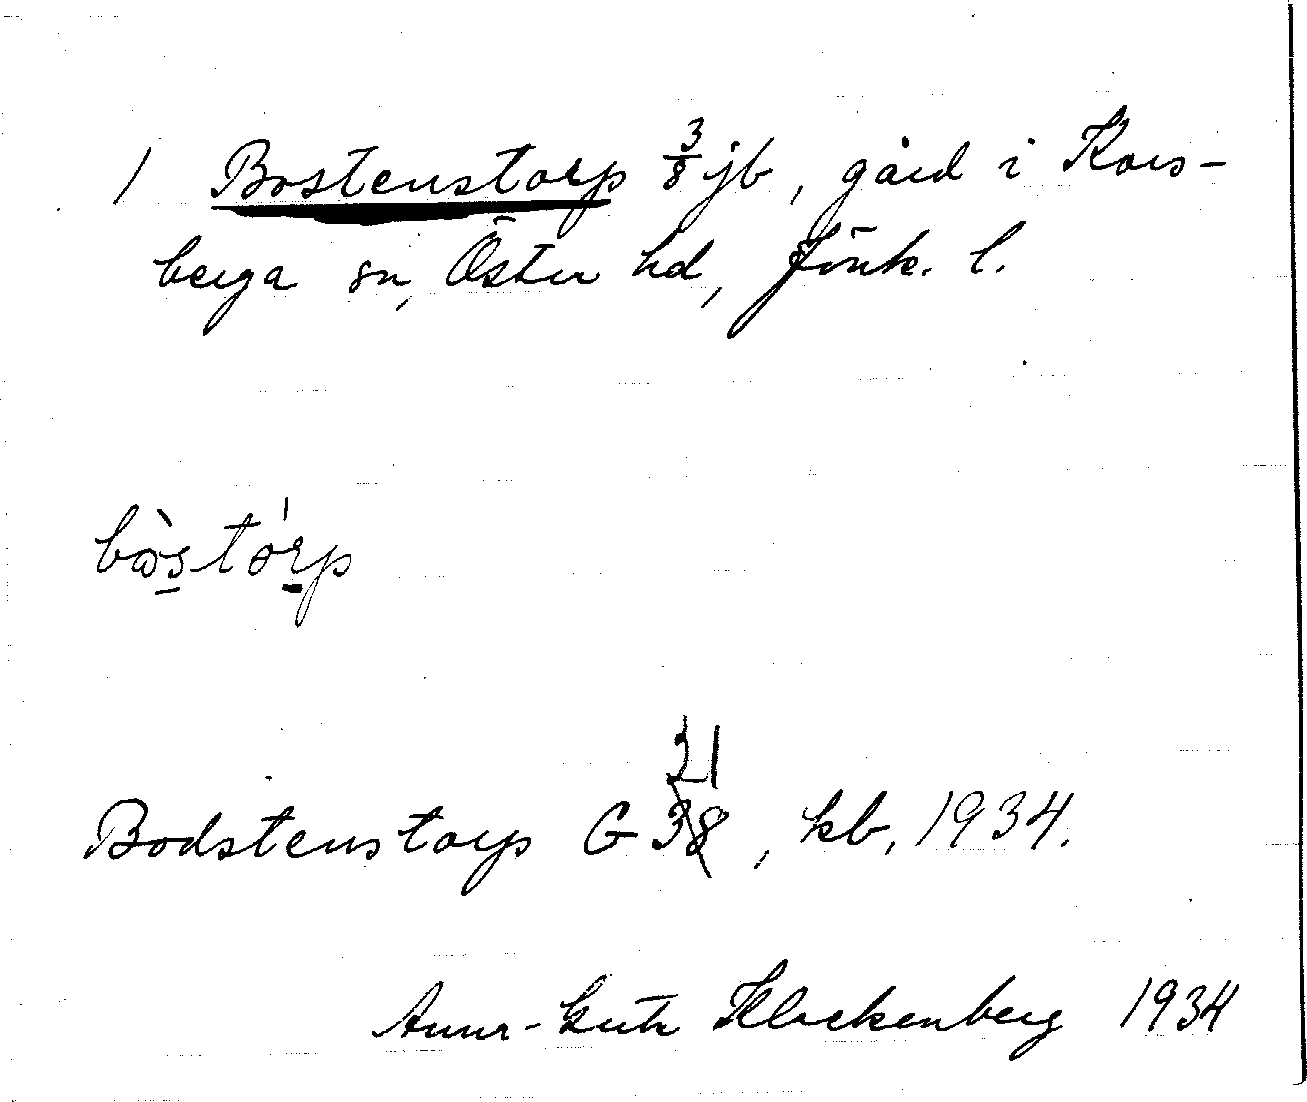 1 Bostenstorp 3/8 jb, gård i Kors-
berga sn, Öster hd, Jönk. l.
bòstórp
21
Bodstenstorp G 38, kb, 1934.
Klockenberg 1934